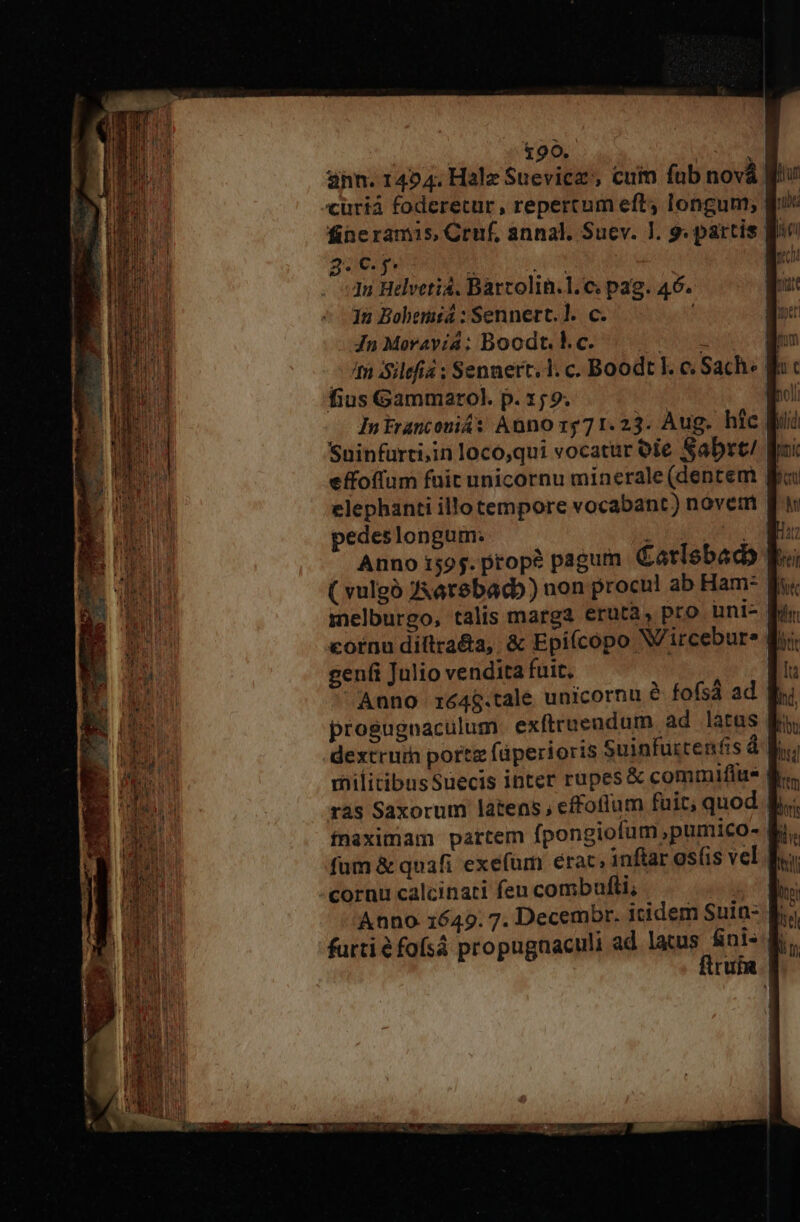 190.
ann. 1494. Halæ Suevicæ, cum ſub novâ
curiâ foderetur, repertum eſt, longum,
ſine ramis, Cruſ. annal. Suev. l. 9. partis
3. c. 5.
In Helvetiâ. Bartolin. l. c. pag. 46.
In Bohemiâ: Sennert. l. c.
In Moraviâ: Boodt. l. c.
In Sileſiâ: Sennert. l. c. Boodt l. c. Sach-
ſius Gammarol. p. 159.
In Franconiâ: Anno 1571. 23. Aug. hîc
Suinfurti, in loco, qui vocatur Die Fahrt/
effoſſum fuit unicornu minerale (dentem
elephanti illo tempore vocabant) novem
pedes longum.
Anno 1595. propè pagum Carlsbach
(vulgò Karsbach) non procul ab Ham-
melburgo, talis marga eruta, pro uni-
cornu diſtracta, & Epiſcopo Wircebur-
genſi Julio vendita fuit.
Anno 1648. tale unicornu è foſsâ ad
progugnaculum exſtruendum ad latus
dextrum portæ ſuperioris Suinfurtenſis à
militibus Suecis inter rupes & commiſſu-
ras Saxorum latens, effoſſum fuit, quod
maximam partem ſpongioſum, pumico-
ſum & quaſi exeſum erat, inſtar osſis vel
cornu calcinati ſeu combuſti.
Anno 1649. 7. Decembr. itidem Suin-
furti è foſsâ propugnaculi ad latus ſini-
ſtrum